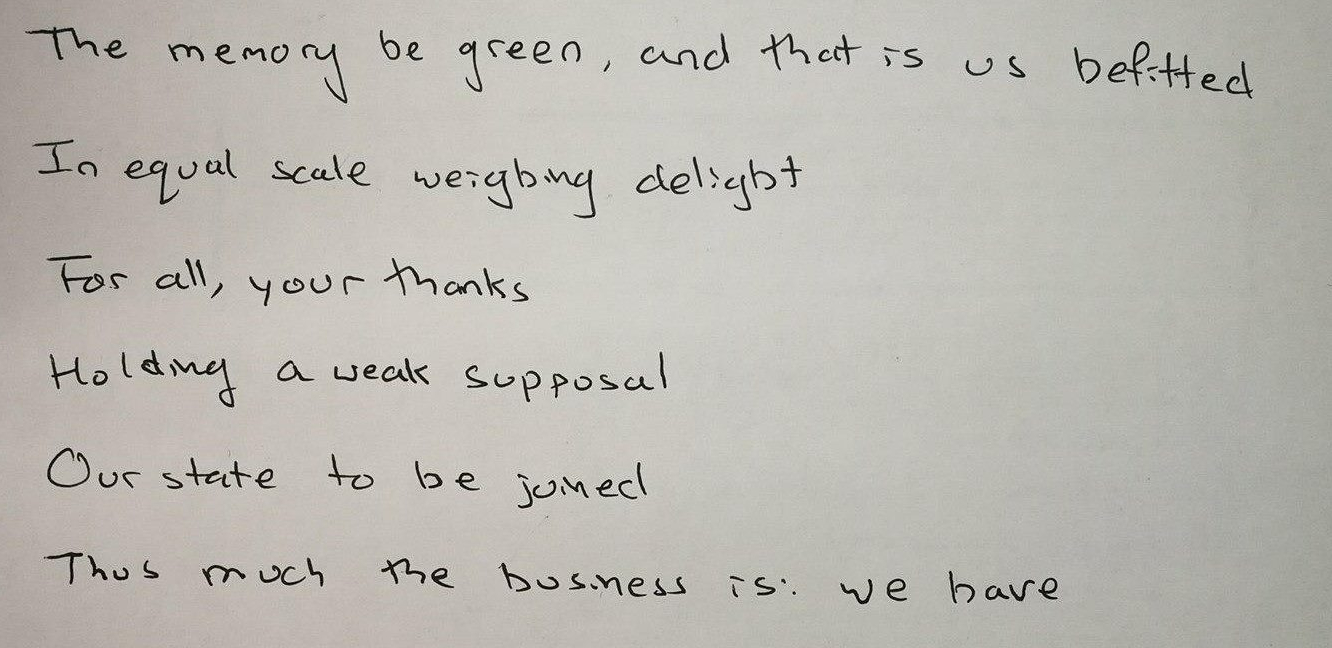 The memory be green, and that is us befitted
In equal scale weighing delight
For all, your thanks
Holding a weak supposal
Our state to be joined
Thus much the business is: we have